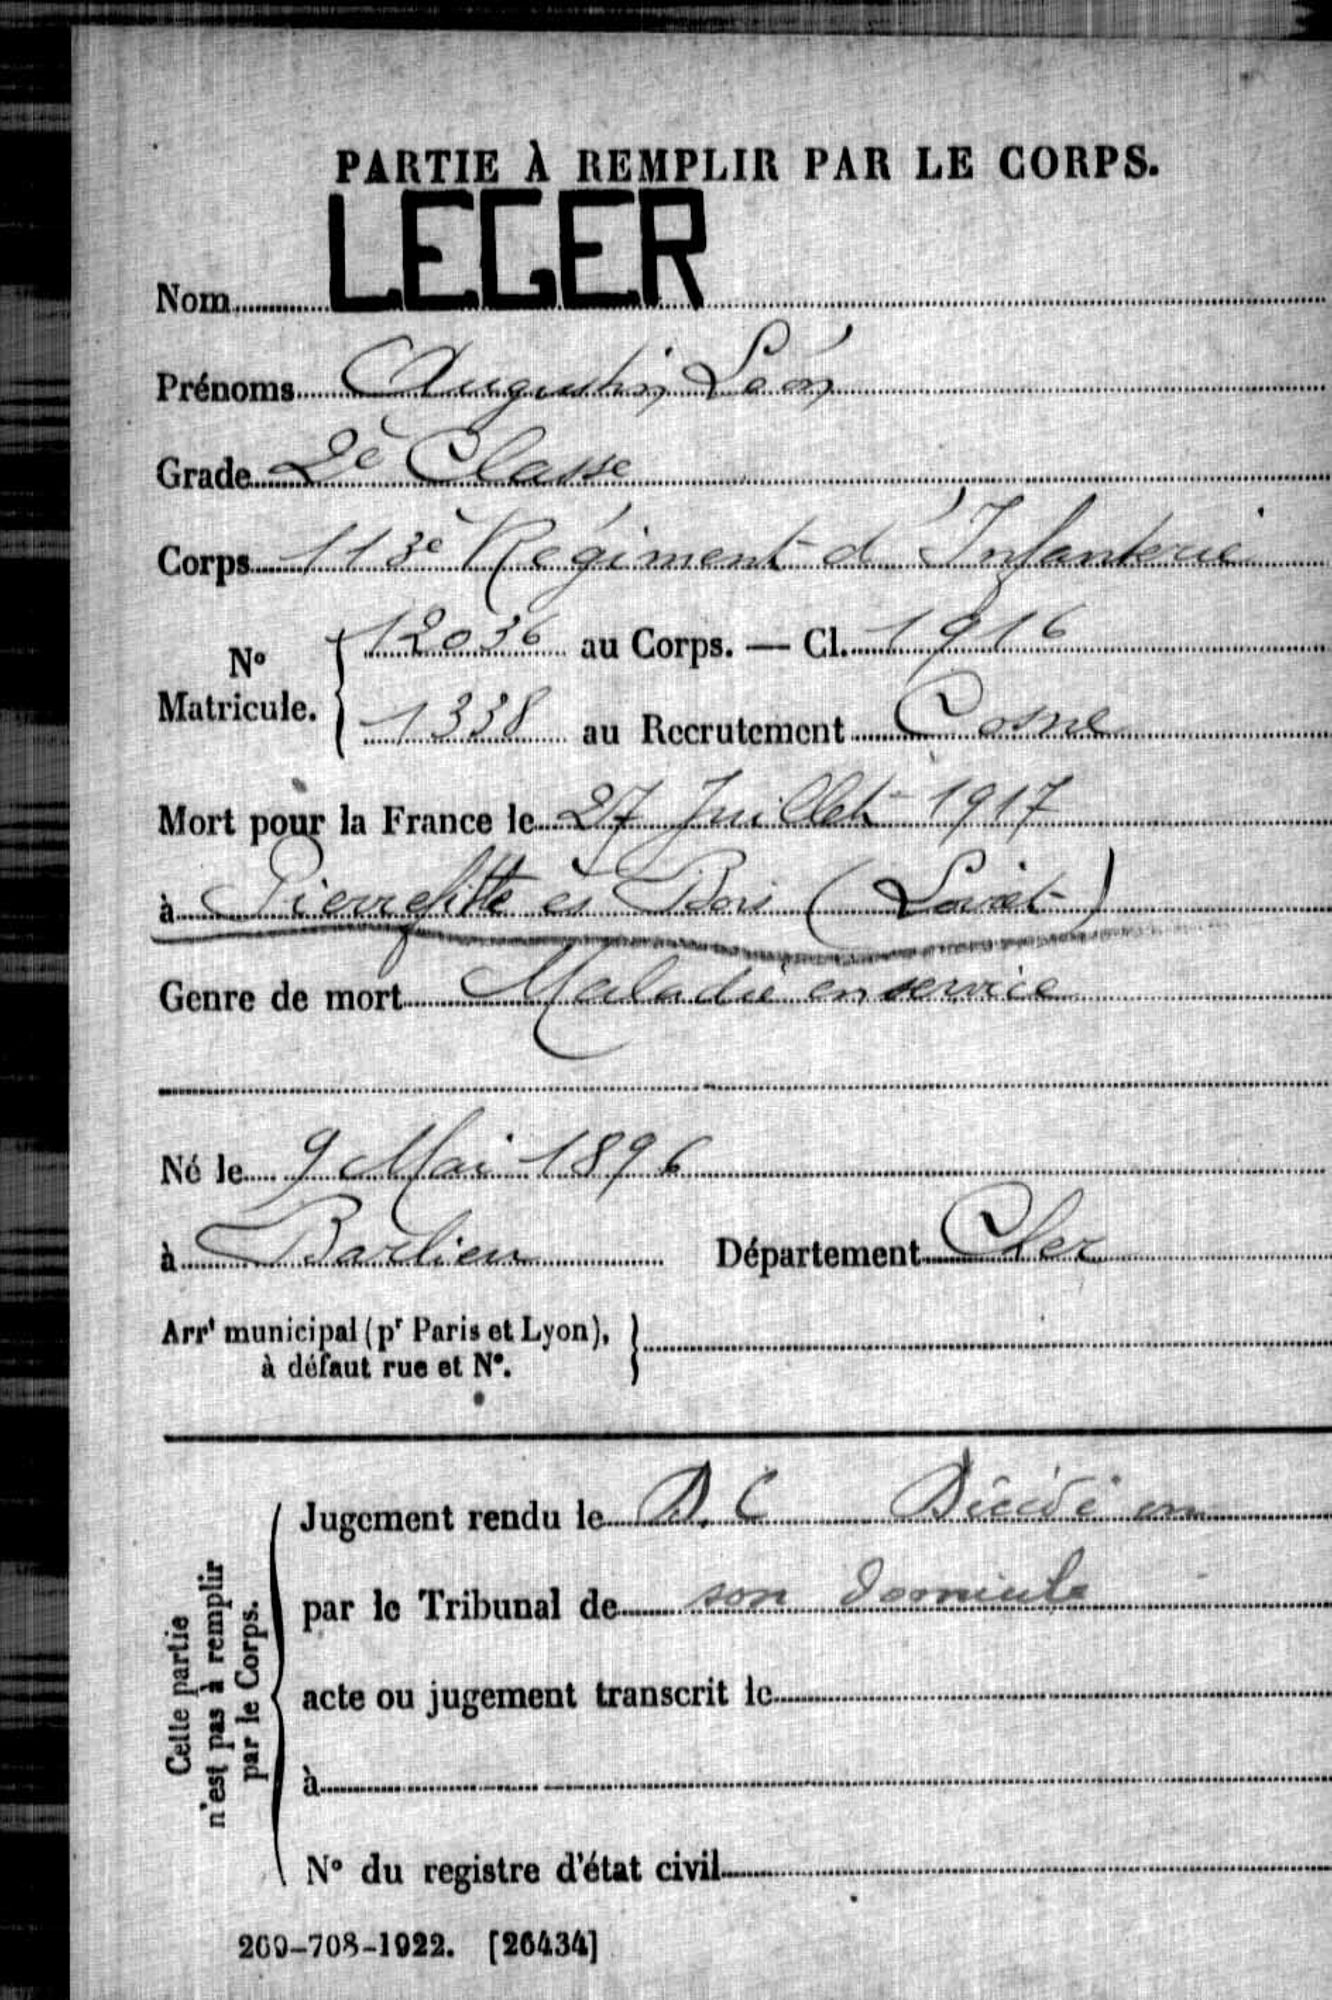 PARTIE À REMPLIR PAR LE CORPS.
Nom LEGER
Prénoms Augustin Léon
Grade 2è Classe
Corps 113è Régiment d'Infanterie
N° Matricule. 12036 au Corps. — Cl. 1916
1338 au Recrutement Cosne
Mort pour la France le 27 Juillet 1917
à Pierrefitte es Bois (Loiret)
Genre de mort Maladie en service
Né le 9 Mai 1896
à Barlieu Département Cher
Arrt municipal (pr Paris et Lyon),
à défaut rue et N°.
Jugement rendu le D. C Décédé en
par le Tribunal de son domicile
acte ou jugement transcrit le
à
N° du registre d'état civil
Cette partie
n'est pas à remplir
par le Corps.
269-708-1922. [26434]